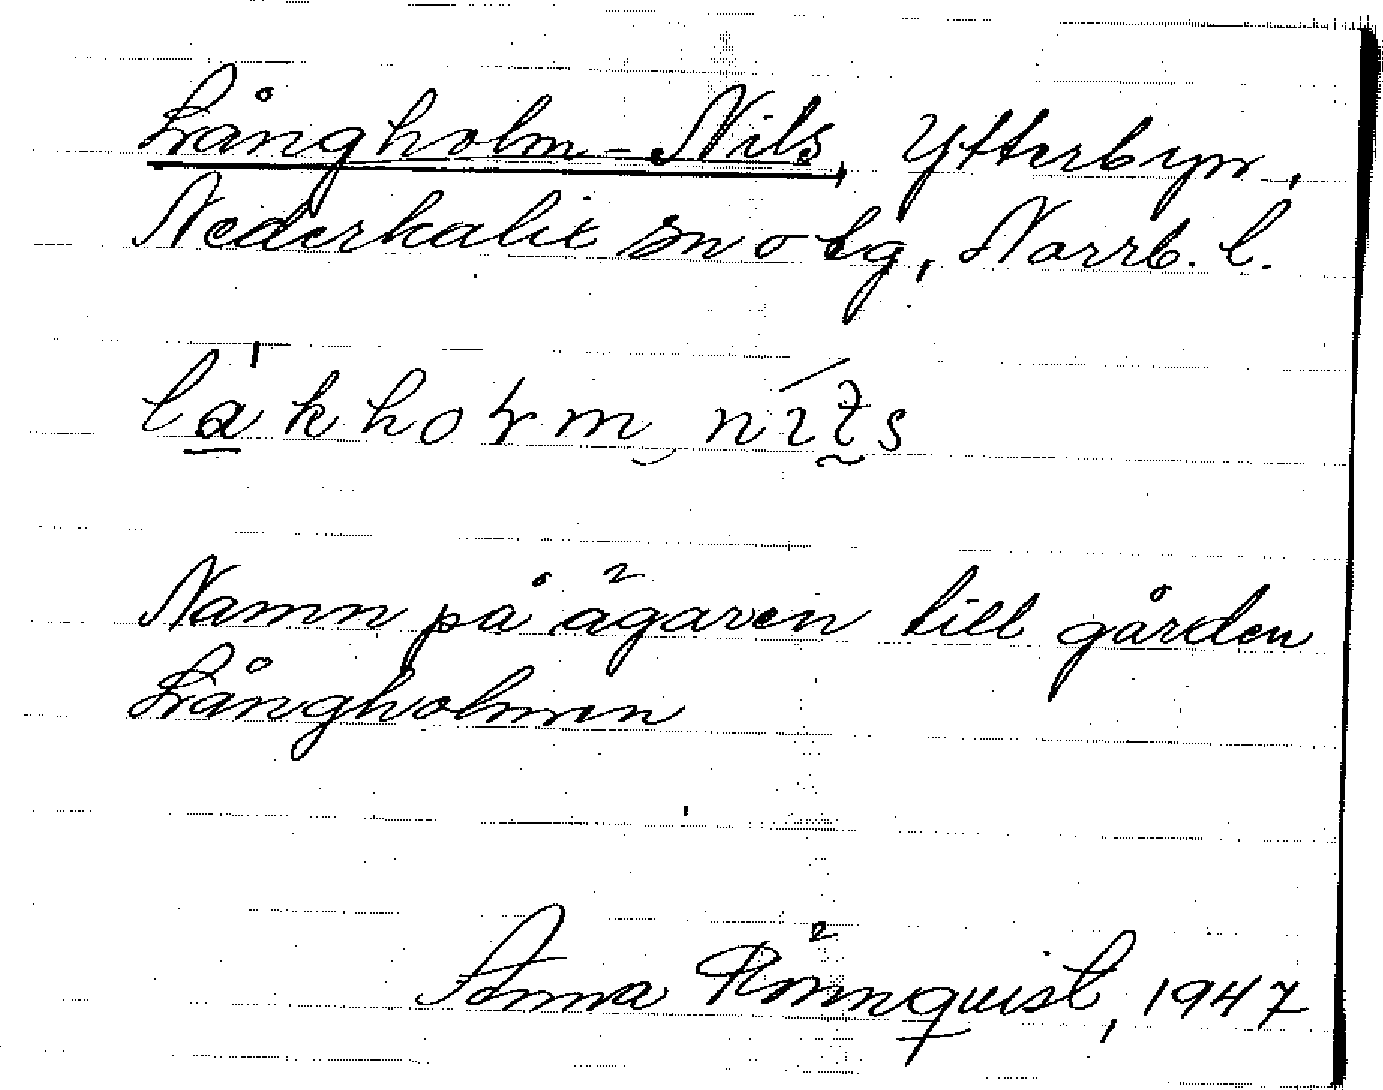 Långholm-Nils, Ytterbyn,
Nederkalix sn o tg, Norrb. l.
Namn på ägaren till gården
Långholmen
Anna Rönnquist, 1947